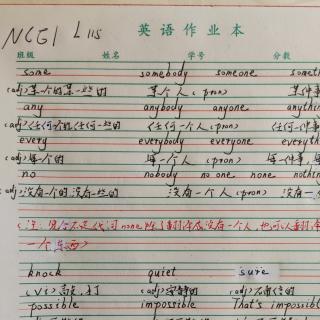 NCE1 L115
英语作业本
班级 姓名 学号 分数
some somebody someone someth
(adj)某个的某一些的 某个人(pron) 某件
any anybody anyone anythin
(adj)任何一个的任何一些的 任何一个人(pron) 任何一件事
every everybody everyone everyth
(adj)每一个的 每一个人(pron) 每一件事
no nobody no one none nothin
(adj)没有一个的没有一些的 没有一个人(pron) 没有一
none 没有一个人
一个东西)
knock quiet sure
(vi)敲,打 (adj)安静的 (adj)
possible impossible That's impossibl